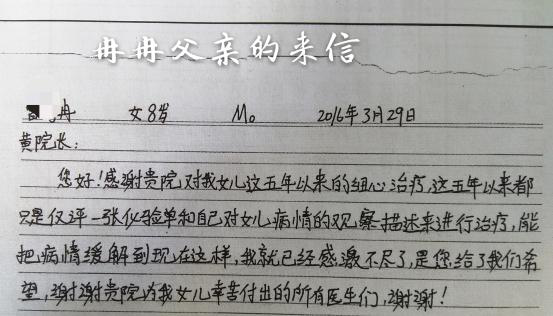 冉冉父亲的来信
冉 女8岁 M₀ 2016年3月29日
黄院长:
您好!感谢贵院对我女儿这五年以来的细心治疗,这五年以来都
只是仅评一张化验单和自己对女儿病情的观察描述来进行治疗,能
把病情缓解到现在这样,我就已经感激不尽了,是您给了我们希
望,谢谢贵院为我女儿幸苦付出的所有医生们,谢谢!